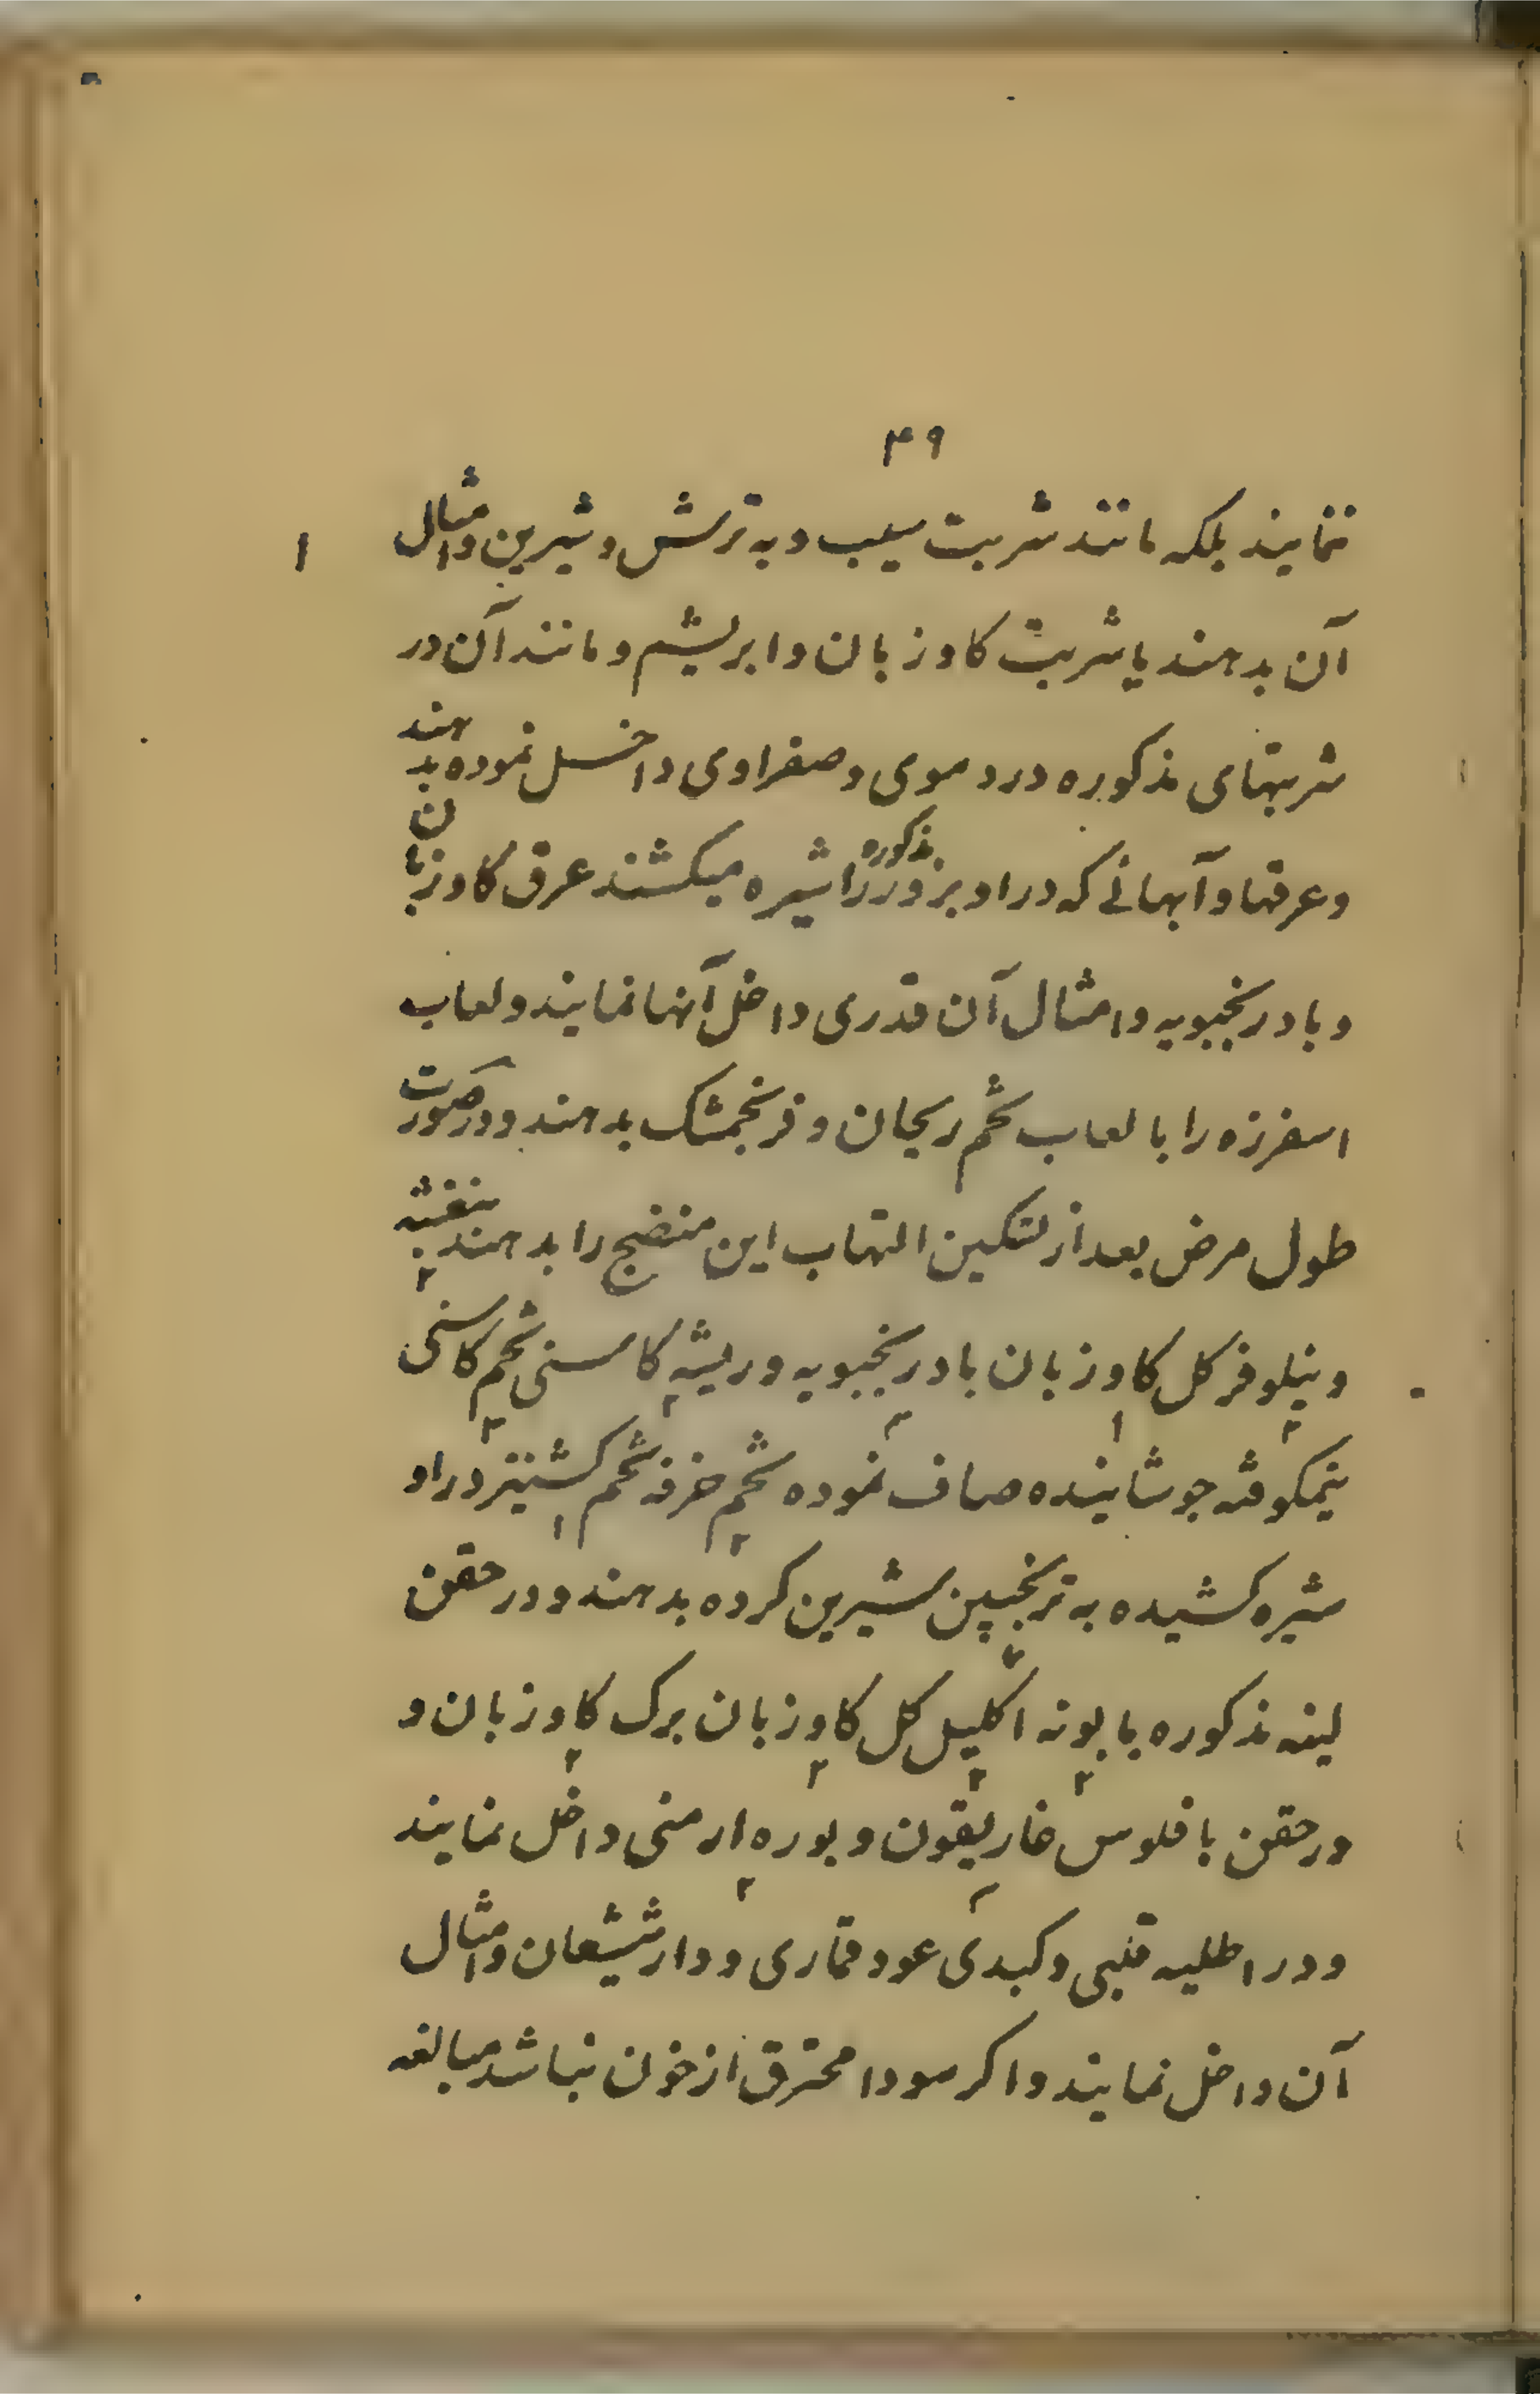 ۴۹
ننمایند بلکه مانند شربت سیب و به ترش و شیرین و امثال
آن بدهند یا شربت کاوزبان و ابریشم و مانند آن در
شربتهای مذکوره در دموی و صفراوی داخل نموده بدهند
و عرقها و آبهائی که در او بزور مذکوره را شیره میکشند عرق کاوزبان
و بادرنجبویه و امثال آن قدری داخل آنها نمایند و لعاب
اسفرزه را با لعاب تخم ریحان و فرنجمشک بدهند و در صورت
طول مرض بعد از تسکین التهاب این منضج را بدهند بنفشه ۲
و نیلوفر ۲ کل کاوزبان ۱ بادرنجبویه و ریشه کاسنی ۲ تخم کاسنی ۲
نیمکوفته جوشانیده صاف نموده تخم خرفه ۲ تخم کشنیز ۱ در او
شیره کشیده به ترنجبین شیرین کرده بدهند و در حقن
لینه مذکوره بابونه ۲ اکلیل ۲ کل کاوزبان ۲ برک کاوزبان ۲ و
در حقن با فلوس غاریقون و بوره ارمنی ۲ داخل نمایند
و در اطلیه قلبی و کبدی عود قماری و دارشیشعان و امثال
آن داخل نمایند و اکر سودا محترق از خون نباشد مبالغه